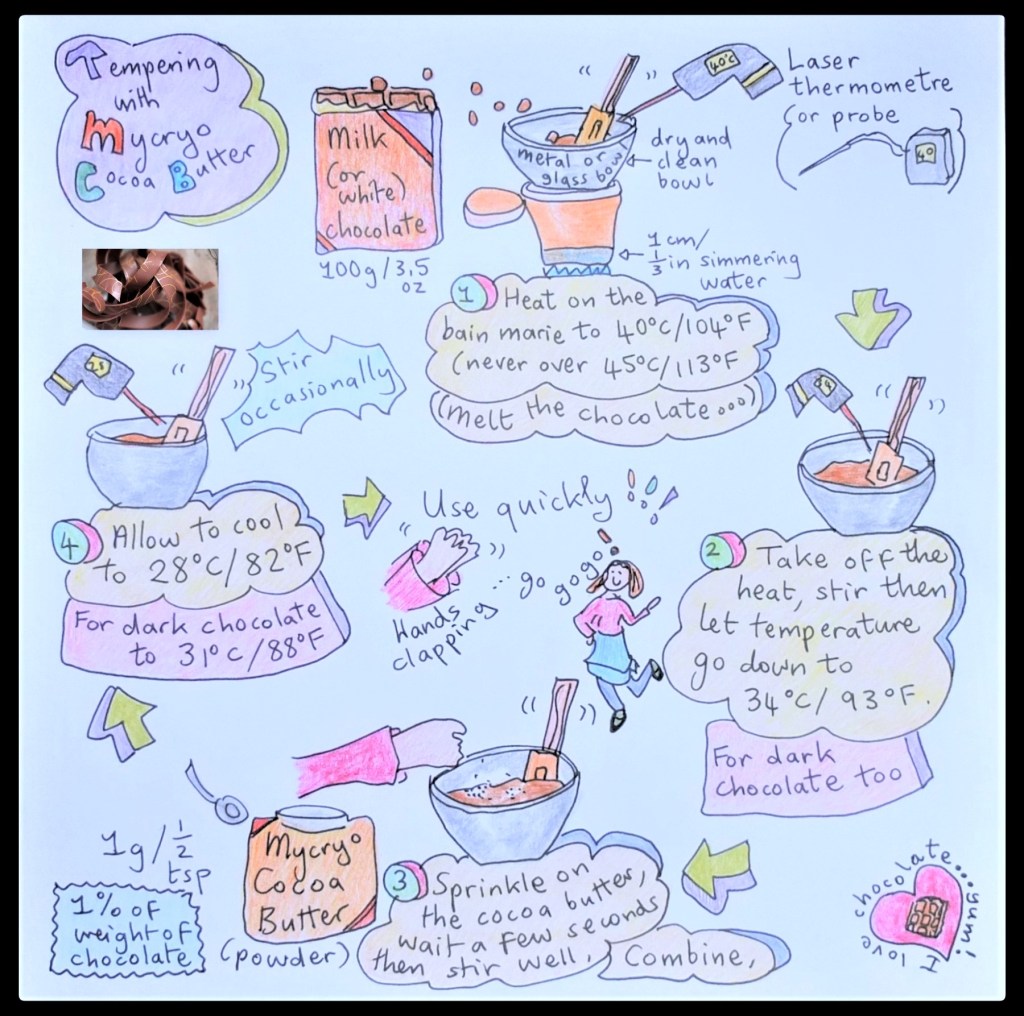 Tempering
with
Mycryo
Cocoa Butter
Milk
(or
white)
chocolate
100g/3.5
oz
40°C
Laser
thermometre
(or probe
40
)
metal or
glass bowl
dry and
clean
bowl
1 cm/
1/3 in simmering
water
1 Heat on the
bain marie to 40°C/104°F
(never over 45°C/113°F
(melt the chocolate...)
34
2 Take off the
heat, stir then
let temperature
go down to
34°C/93°F.
For dark
chocolate too
Mycryo
Cocoa
Butter
(powder)
1g/1/2
tsp
1% of
weight of
chocolate
3 Sprinkle on
the cocoa butter,
wait a few seconds
then stir well,
Combine,
28
Stir
occasionally
4 Allow to cool
to 28°C/82°F
For dark chocolate
to 31°C/88°F
Use quickly !!!
Hands
clapping
... go gogo!
I love chocolate...yum!